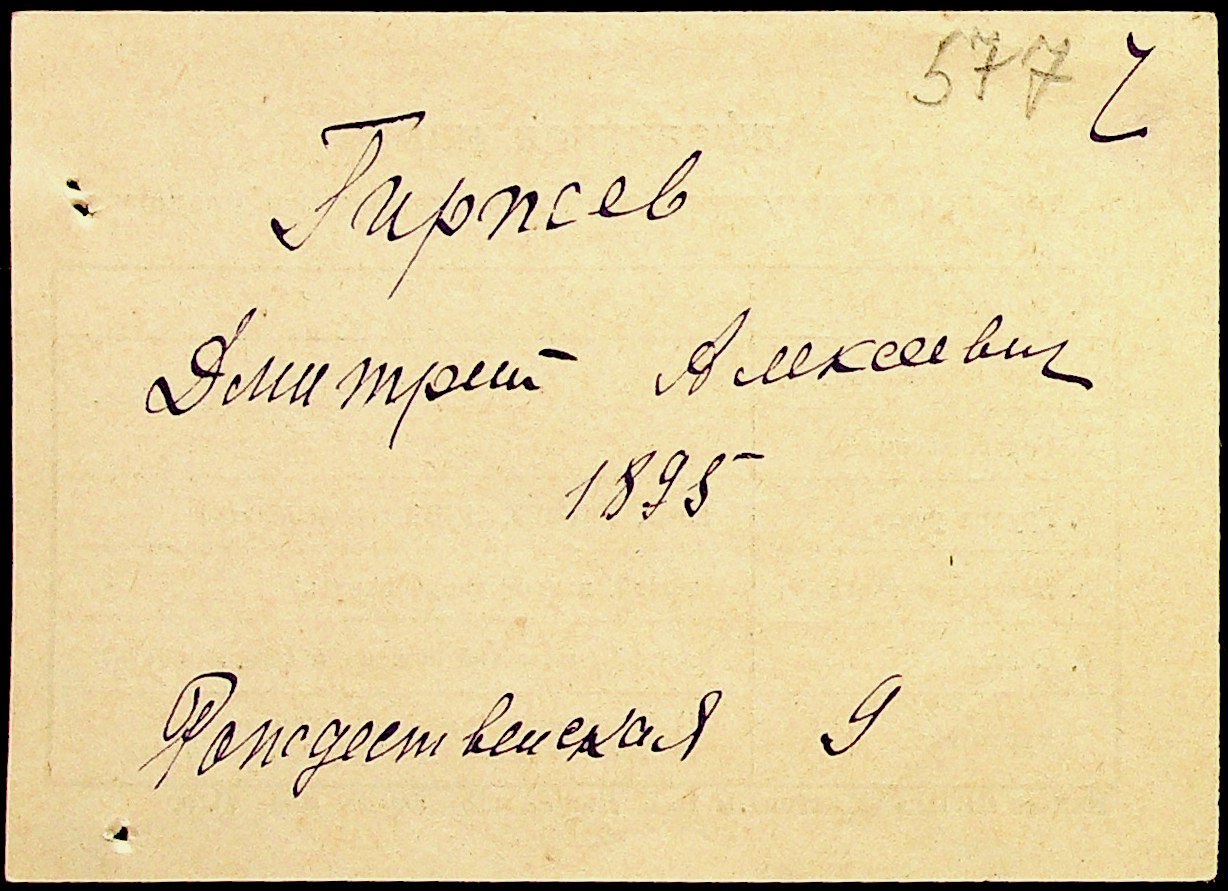 577 г
Гиржев
Дмитрий Алексеевич
1895
Рождественская 9